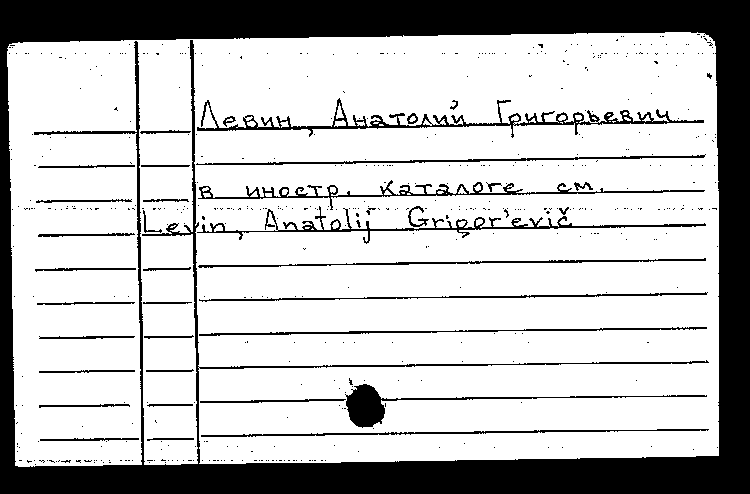 Левин, Анатолий Григорьевич
в иностр. каталоге см.
Levin, Anatolij Grigor'evič